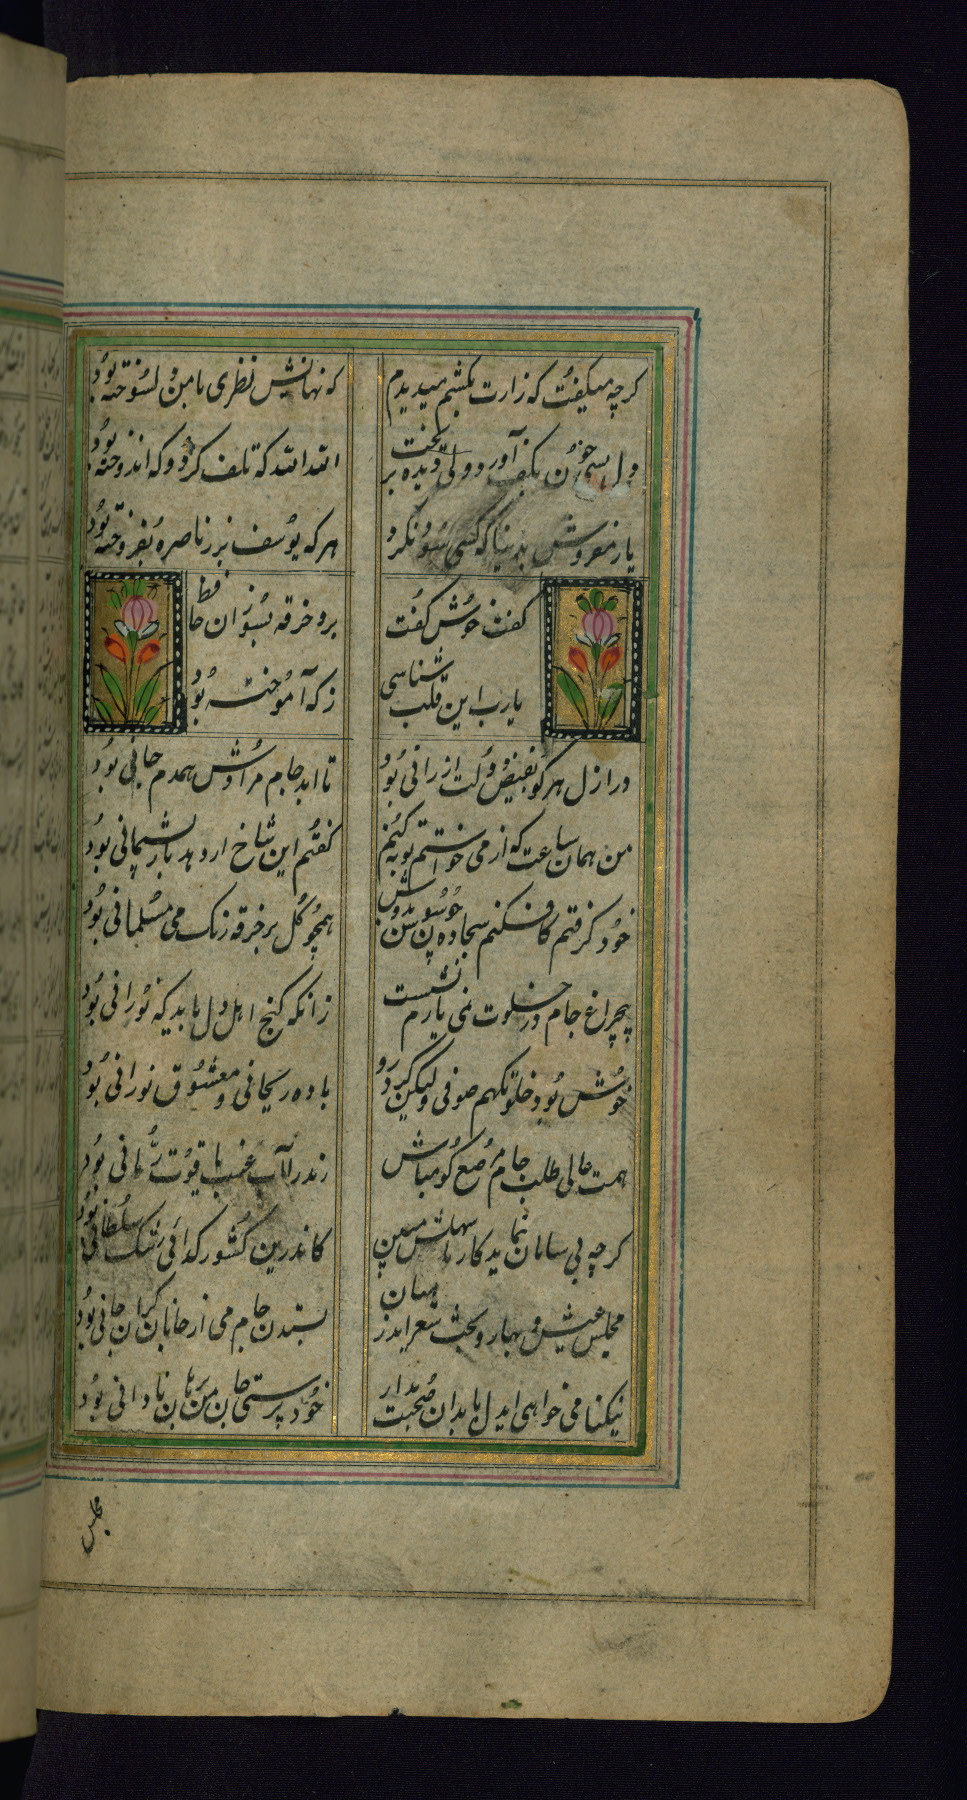 کرچه میکفت که زارت بکشم میدیدم که نهانش نظری با من دلسوخته بود
دل بسی خون بکف آورد ولی دیده بریخت الله الله که تلف کرد و که اندوخته بود
یار مفروش بدنیا که کسی سود نکرد هر که یوسف بزر ناصره بفروخته بود
کفت خوش کفت برو خرقه بسوزان حافظ
یارب این قلب شناسی ز که آموخته بود
در ازل هر کو بفیض دولت ارزانی بود تا ابد جام مرادش همدم جانی بود
من همان ساعت که از می خواستم توبه کنم کفتم این شاخ ار دهد بار پشیمانی بود
خود کرفتم کافکنم سجاده چون سوسن بدوش همچو کل بر خرقه زنک می مسلمانی بود
بیچراغ جام در خلوت نمی یارم نشست زانکه کنج اهل دل باید که نورانی بود
خوش بود خلوتکهم صوفی ولیکن کر درو باده ریحانی و معشوق نورانی بود
همت عالی طلب جام مرصع کو مباش رند را آب عنب یاقوت رمانی بود
کرچه بی سامان نماید کار ما سهلش مبین کاندرین کشور کدائی رشک سلطانی بود
مجلس عیش و بهار و بحث شعر اندر میان بستدن جام می از جانان کران جانی بود
نیکنامی خواهی ایدل با بدان صحبت مدار خود پرستی جان من برهان نادانی بود
مجلس